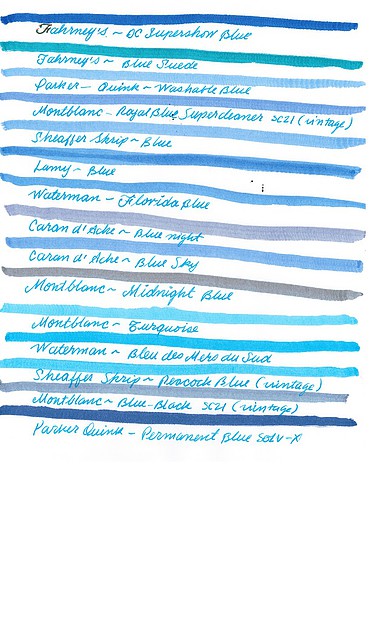 Fahrney's ~ DC Supershow Blue
Fahrney's ~ Blue Suede
Parker - Quink ~ Washable Blue
Montblanc - Royal Blue Supercleaner SC21 (vintage)
Sheaffer Skrip ~ Blue
Lamy ~ Blue
Waterman - Florida Blue
Caran d'Ache ~ Blue night
Caran d'Ache ~ Blue Sky
Montblanc ~ Midnight Blue
Montblanc ~ Turquoise
Waterman ~ Bleu des Mers du Sud
Sheaffer Skrip ~ Peacock Blue (vintage)
Montblanc ~ Blue-Black SC21 (vintage)
Parker Quink - Permanent Blue SOLV-X